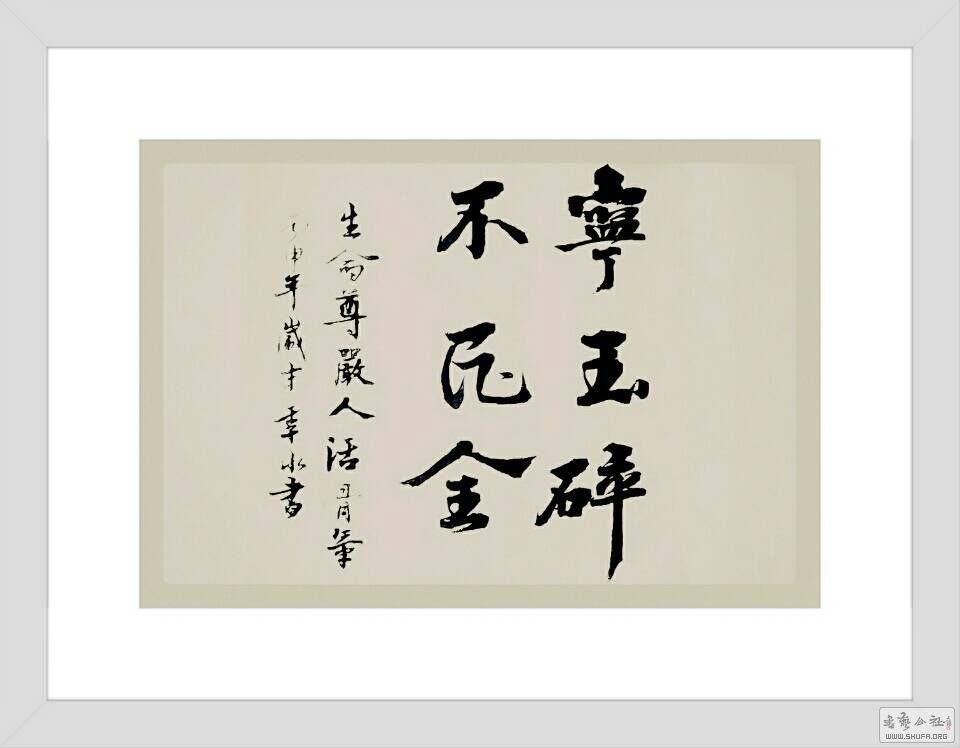 寧玉碎
不瓦全
生命尊嚴人活骨氣
申年歲水書
書藝公社
WWW.SHUFA.ORG